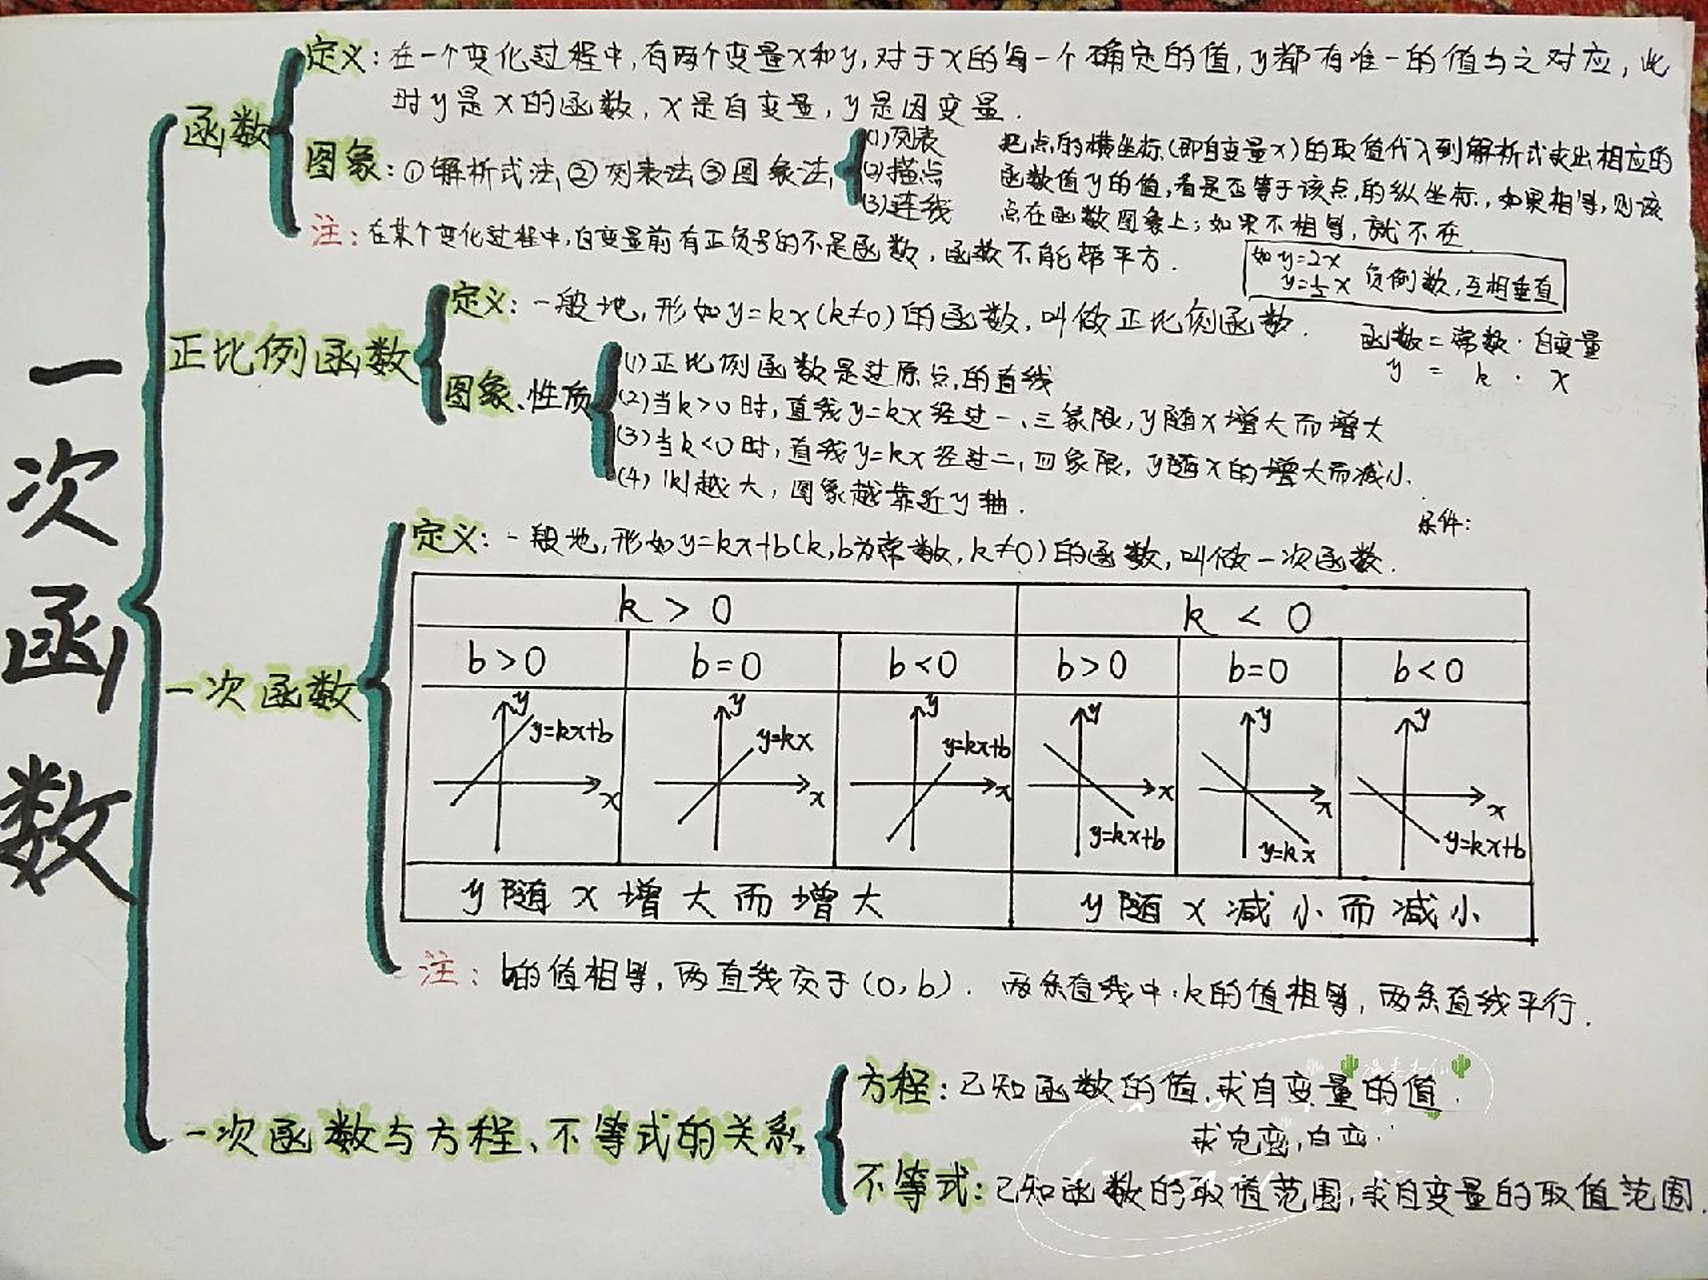 一次函数
函数
定义：在一个变化过程中，有两个变量x和y，对于x的每一个确定的值，y都有准一的值与之对应，此
时y是x的函数，x是自变量，y是因变量．
图象：①解析式法，②列表法③图象法，
(1)列表
(2)描点
(3)连线
把点的横坐标（即自变量x）的取值代入到解析式求出相应的
函数值y的值，看是否等于该点的纵坐标，如果相等，则该
点在函数图象上；如果不相等，就不在
注：在某个变化过程中，自变量前有正负号的不是函数，函数不能带平方．
如y=2x
y=½x 负倒数，互相垂直
正比例函数
定义：一般地，形如y=kx(k≠0)的函数，叫做正比例函数．
函数=常数·自变量
y = k · x
图象、性质
(1)正比例函数是过原点的直线
(2)当k>0时，直线y=kx经过一、三象限，y随x增大而增大
(3)当k<0时，直线y=kx经过二，四象限，y随x的增大而减小．
(4)|k|越大，图象越靠近y轴．
条件：
一次函数
定义：一般地，形如y=kx+b(k,b为常数，k≠0)的函数，叫做一次函数．
k > 0 k < 0
b>0 b=0 b<0 b>0 b=0 b<0
y y y y y y
y=kx+b y=kx y=kx+b
x x x x x x
y=kx+b y=kx y=kx+b
y随x增大而增大 y随x减小而减小
注：b的值相等，两直线交于(0,b)．两条直线中k的值相等，两条直线平行．
一次函数与方程、不等式的关系
方程：已知函数的值，求自变量的值．
不等式：已知函数的取值范围，求自变量的取值范围．